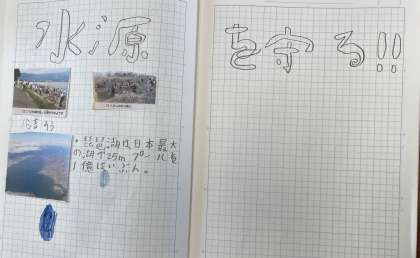 水源を守る!!
・琵琶湖は日本最大
の湖で25mプール
1億はいぶん。